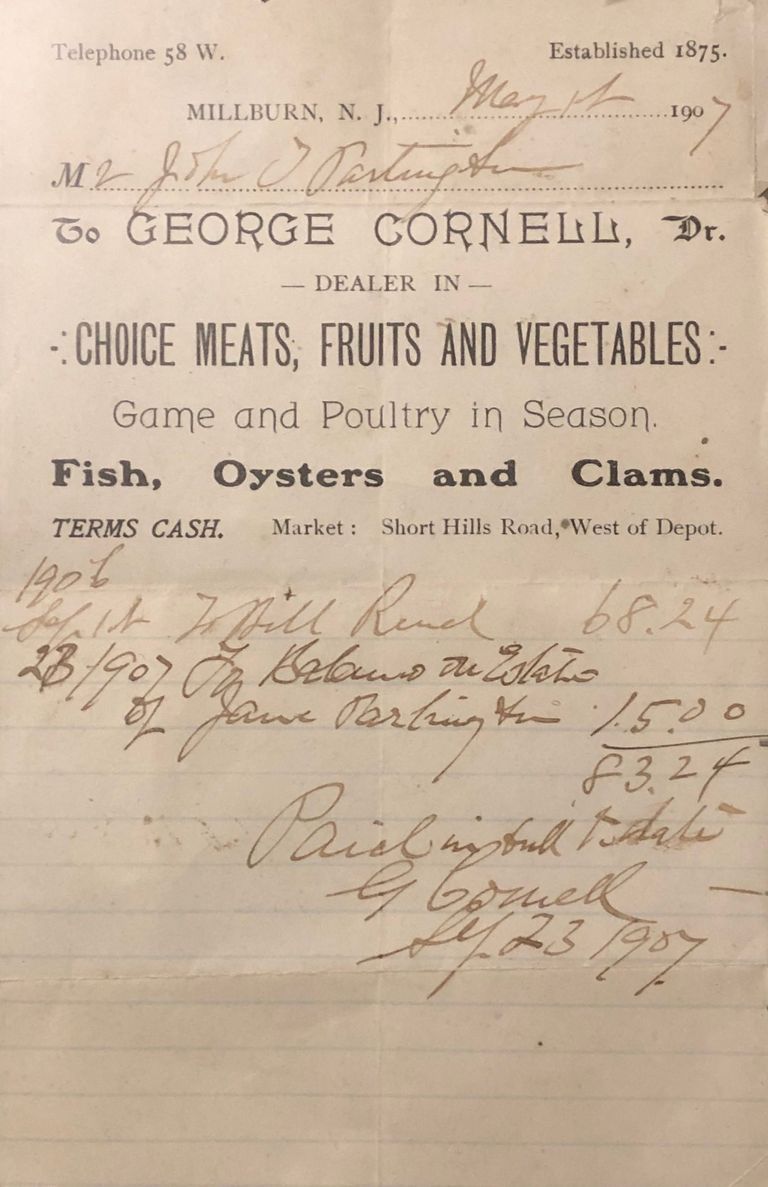 Telephone 58 W. Established 1875.
MILLBURN, N. J., May 1st 1907
Mr John T Partington
To GEORGE CORNELL, Dr.
— DEALER IN —
CHOICE MEATS, FRUITS AND VEGETABLES
Game and Poultry in Season.
Fish, Oysters and Clams.
TERMS CASH. Market: Short Hills Road, West of Depot.
1906
Sep. 1st To Bill Rend 68.24
23/1907 To Balance on Estate
of Jane Partington 15.00
83.24
Paid in full to date
G Cornell
Sep. 23 1907